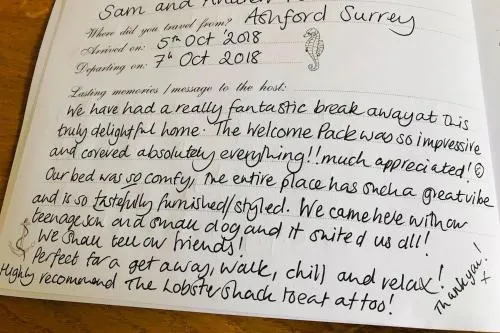 Sam and
Where did you travel from? Ashford Surrey
Arrived on: 5th Oct '2018
Departing on: 7th Oct 2018
Lasting memories / message to the host:
We have had a really fantastic break away at this
truly delightful home. The Welcome Pack was so impressive
and covered absolutely everything!! much appreciated! ☺
Our bed was so comfy, the entire place has such a great vibe
and is so tastefully furnished/styled. We came here with our
teenage son and small dog and it suited us all!
We shall tell our friends!
Perfect for a get away, walk, chill and relax!
Highly recommend The Lobster Shack to eat at too!
Thank you!
x